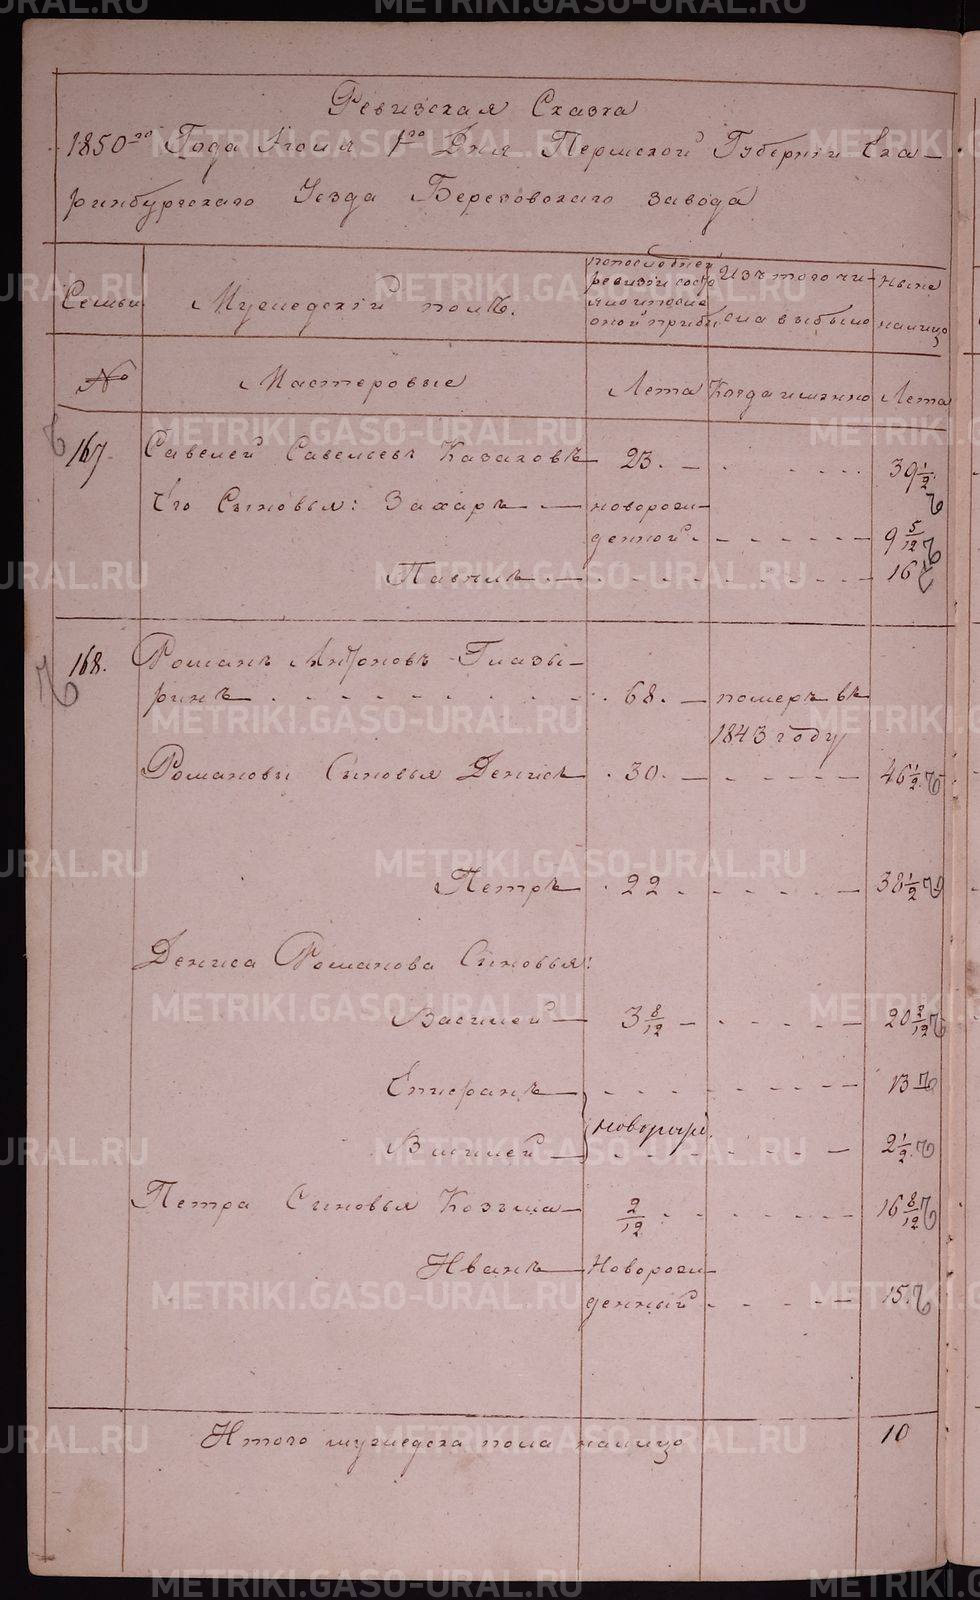 Ревизская Сказка
1850го Года Июня 1го Дня Пермской Губернiи Ека-
ринбургскаго Уезда Березовскаго завода
Семьи
Мужедскiй полъ.
попоследней
ревизiи состо
Изъ того чи-
ныне
яло и после
оной прибы
сла выбыло
налицо
№
Мастеровые
Лета
Когда именно
Лета
167.
Савелей Савельевъ Казаковъ
23.
39 1/2
Его Сыновья: Захаръ
новорож-
денной
9 5/12
Павелъ
16
168.
Романъ Антоновъ Глазы-
ринъ
68.
померъ въ
1843 году
Романовы Сыновья Денисъ
30.
46 1/2
Петръ
22
38 1/2
Дениса Романова Сыновья:
Василей
3 8/12
20 2/12
Епифанъ
13
новорожд.
Василей
2 1/2
Петра Сыновья Козьма
2/12
16 8/12
Иванъ
Новорож-
денный
15.
Итого мужедска пола налицо
10
METRIKI.GASO-URAL.RU